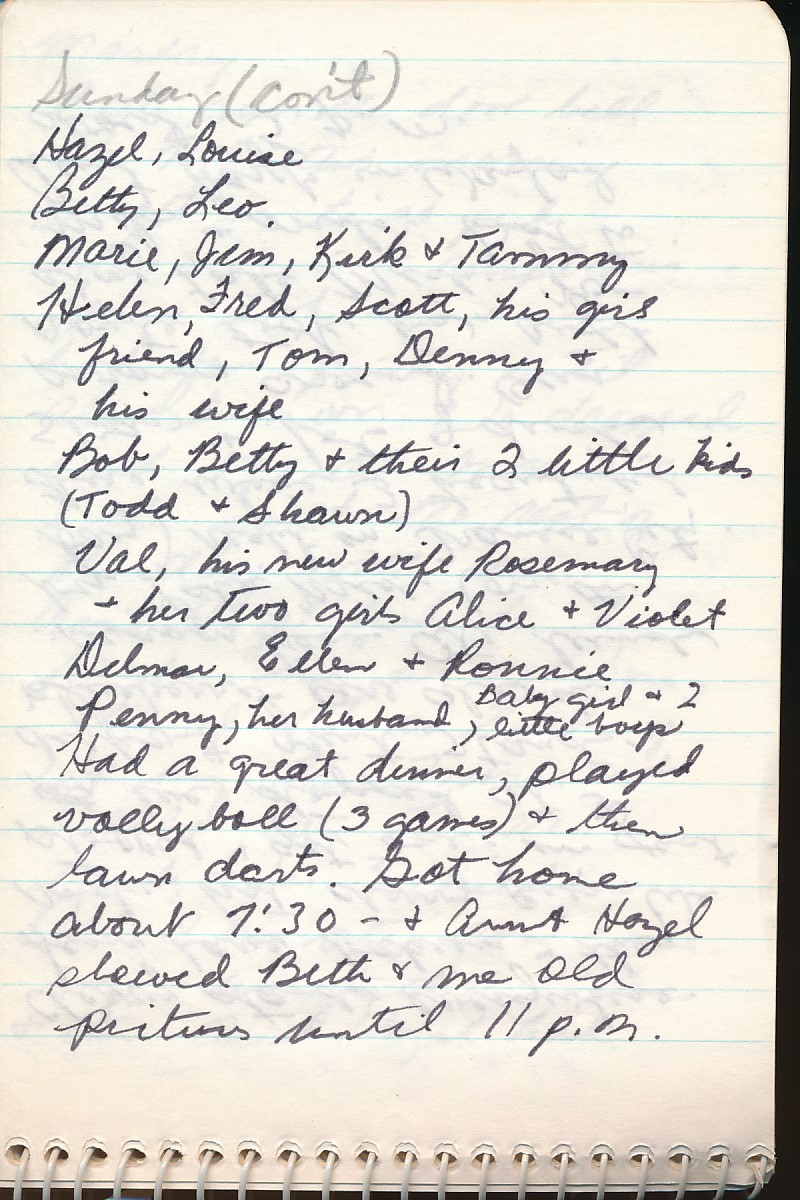 Sunday (con't)
Hazel, Louise
Betty, Leo.
Marie, Jim, Kirk & Tammy
Helen, Fred, Scott, his girl
friend, Tom, Denny &
his wife
Bob, Betty & their 2 little kids
(Todd & Shawn)
Val, his new wife Rosemary
& her two girls Alice & Violet
Delmar, Ellen & Ronnie
Penny, her husband, Baby girl & 2
little boys
Had a great dinner, played
volly ball (3 games) & then
lawn darts. Got home
about 7:30 - & Aunt Hazel
showed Beth & me old
pictures until 11 p.m.